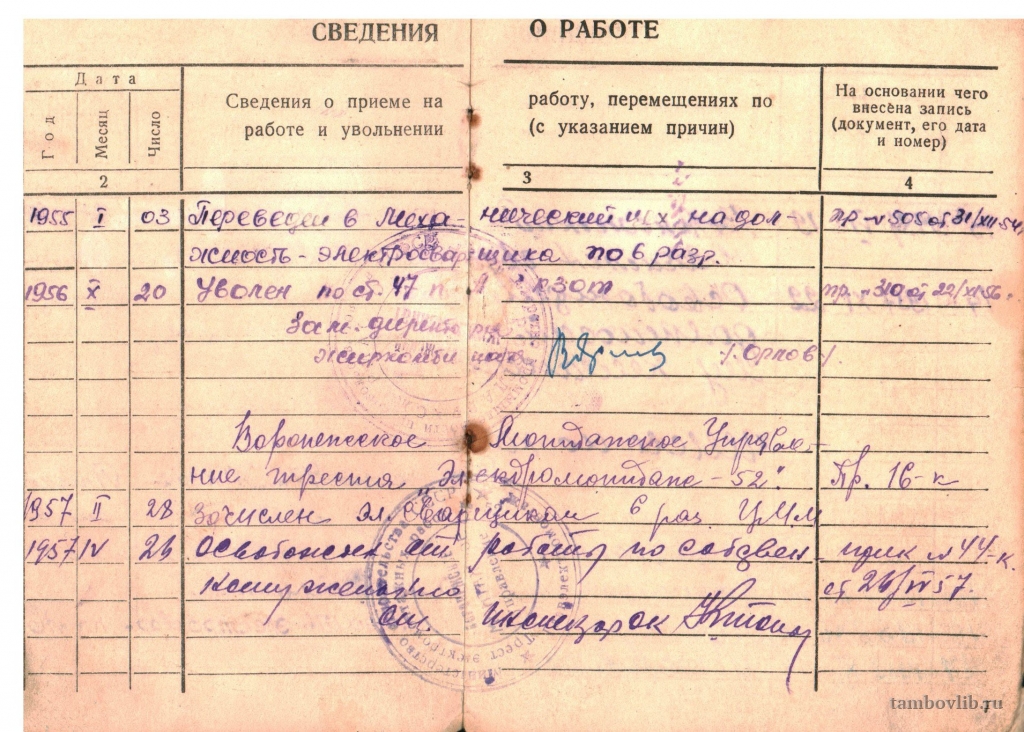 СВЕДЕНИЯ О РАБОТЕ
Дата
Год Месяц Число
Сведения о приеме на работу, перемещениях по
работе и увольнении (с указанием причин)
На основании чего
внесена запись
(документ, его дата
и номер)
2 3 4
1955 I 03 Переведен в механический цех на дол- пр. № 505 от 31/XII-54
жность - электросварщика по 6 разр.
1956 X 20 Уволен по ст. 47 п. КЗОТ пр. 310 от 22/XI-56
Зам. директора
жиркомбината /Орлов/
Воронежское Монтажное Управле-
ние треста "Электромонтаж-52" Пр. 16-к
1957 II 28 Зачислен эл. сварщиком 6 раз ЦММ
1957 IV 26 Освобожден от работы по собствен
кому желанию от 26/IV 57.
Ст инспектор ОК
7
tambovlib.ru